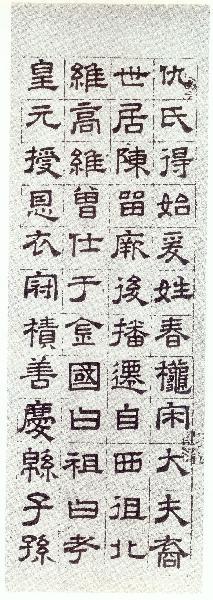 仇氏得始爰姓春龝宋大夫裔
世居陳留厥後播遷自西徂北
維高維曾仕于金國曰祖曰考
皇元授恩衣冠積善慶緜子孫